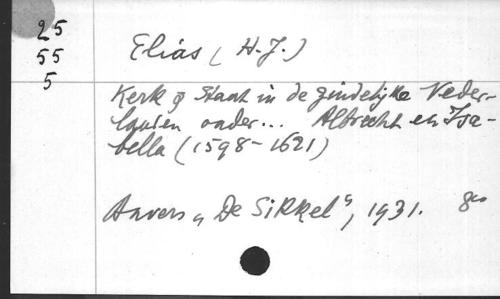 25
55
5
Elias (H.J.)
Kerk & Staat in de zuidelijke Neder-
landen onder... Albrecht en Isa-
bella (1598-1621)
Anvers „De Sikkel", 1931. 8o